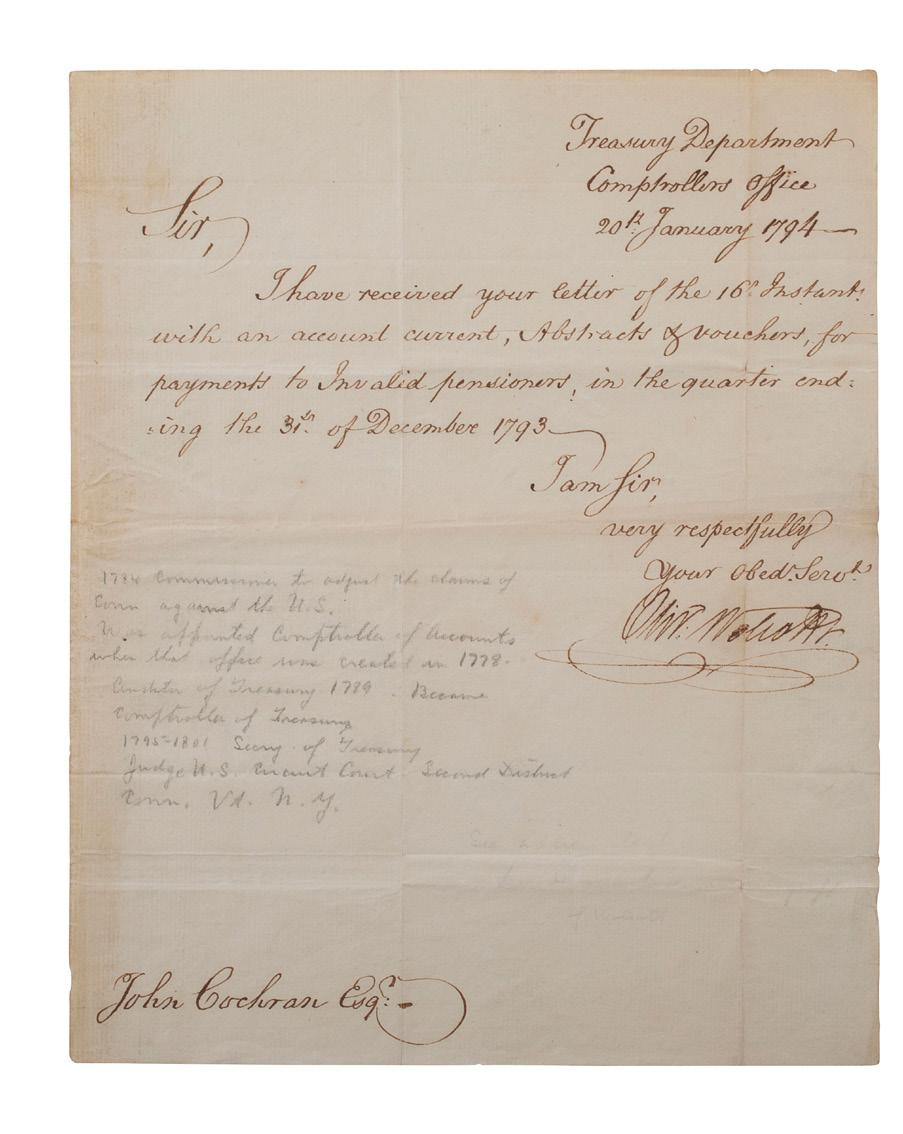 Treasury Department
Comptrollers Office
20th January 1794
Sir,
I have received your letter of the 16th Instant:
with an account current, Abstracts & vouchers, for
payments to Invalid pensioners, in the quarter end:
:ing the 31st. of December 1793
I am Sir,
very respectfully
Your Obedt. Servt.
Olivr. Wolcott Jr.
1784 Commissioner to adjust the claims of
Conn against the U.S.
Was appointed Comptroller of Accounts
when that office was created in 1778.
Auditor of Treasury 1789. Became
Comptroller of Treasury
1795-1801 Secry. of Treasury
Judge U.S. Circuit Court. Second District
Conn. Vt. N.Y.
of
John Cochran Esqr.